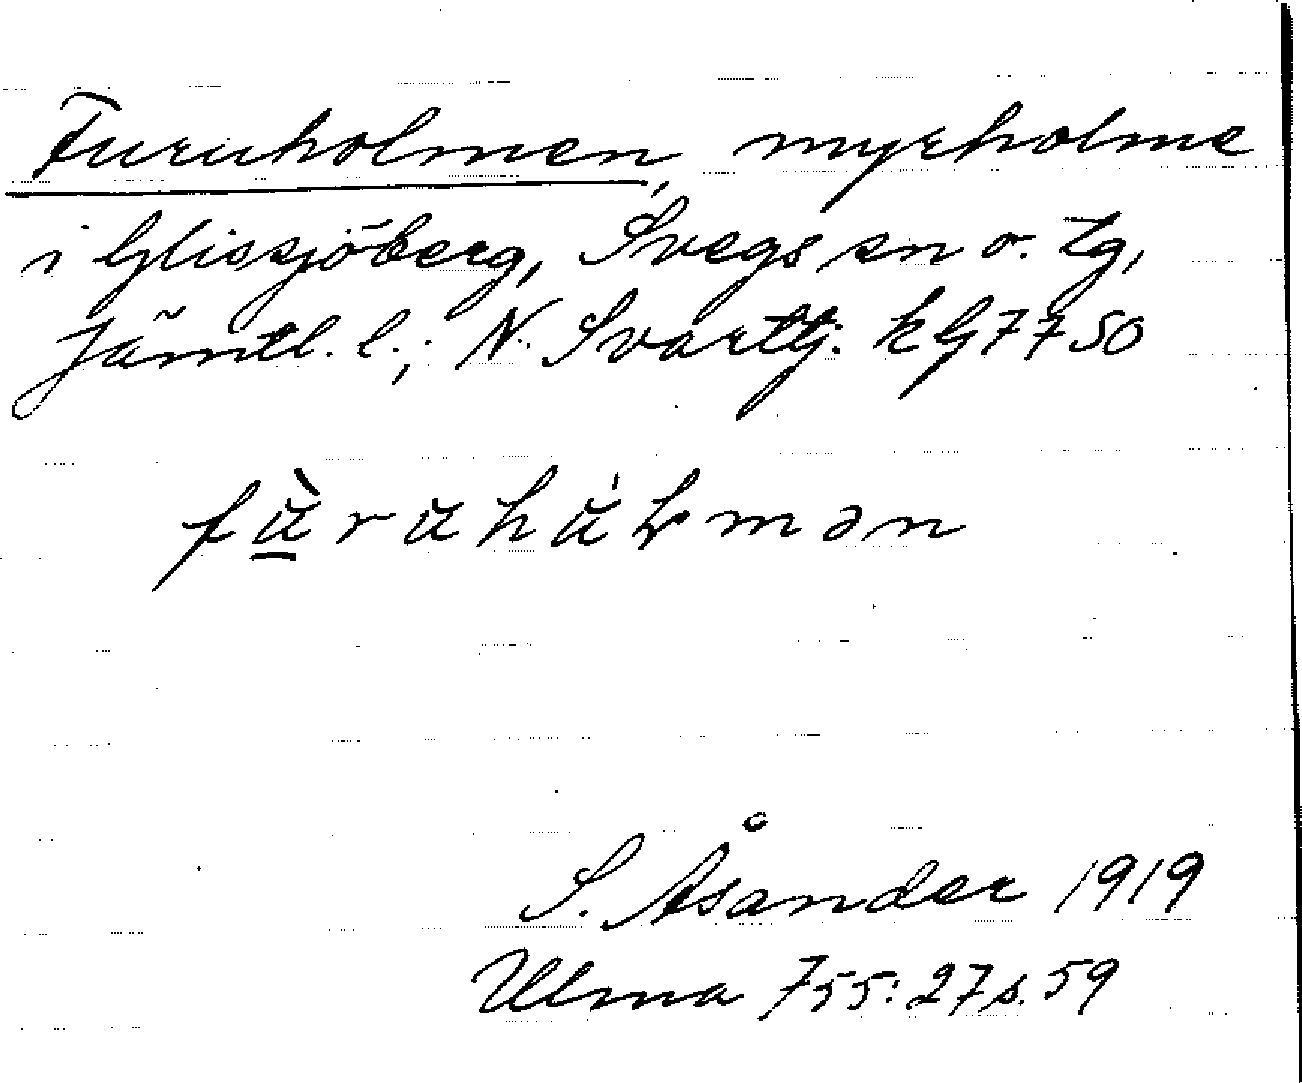 Furuholmen, myrholme
i Glissjöberg, Svegs sn o. tg,
Jämtl. l.; N. Svarttj: k G7750
fùruhúlmən
S. Åsander 1919
Ulma 755:27 s. 59